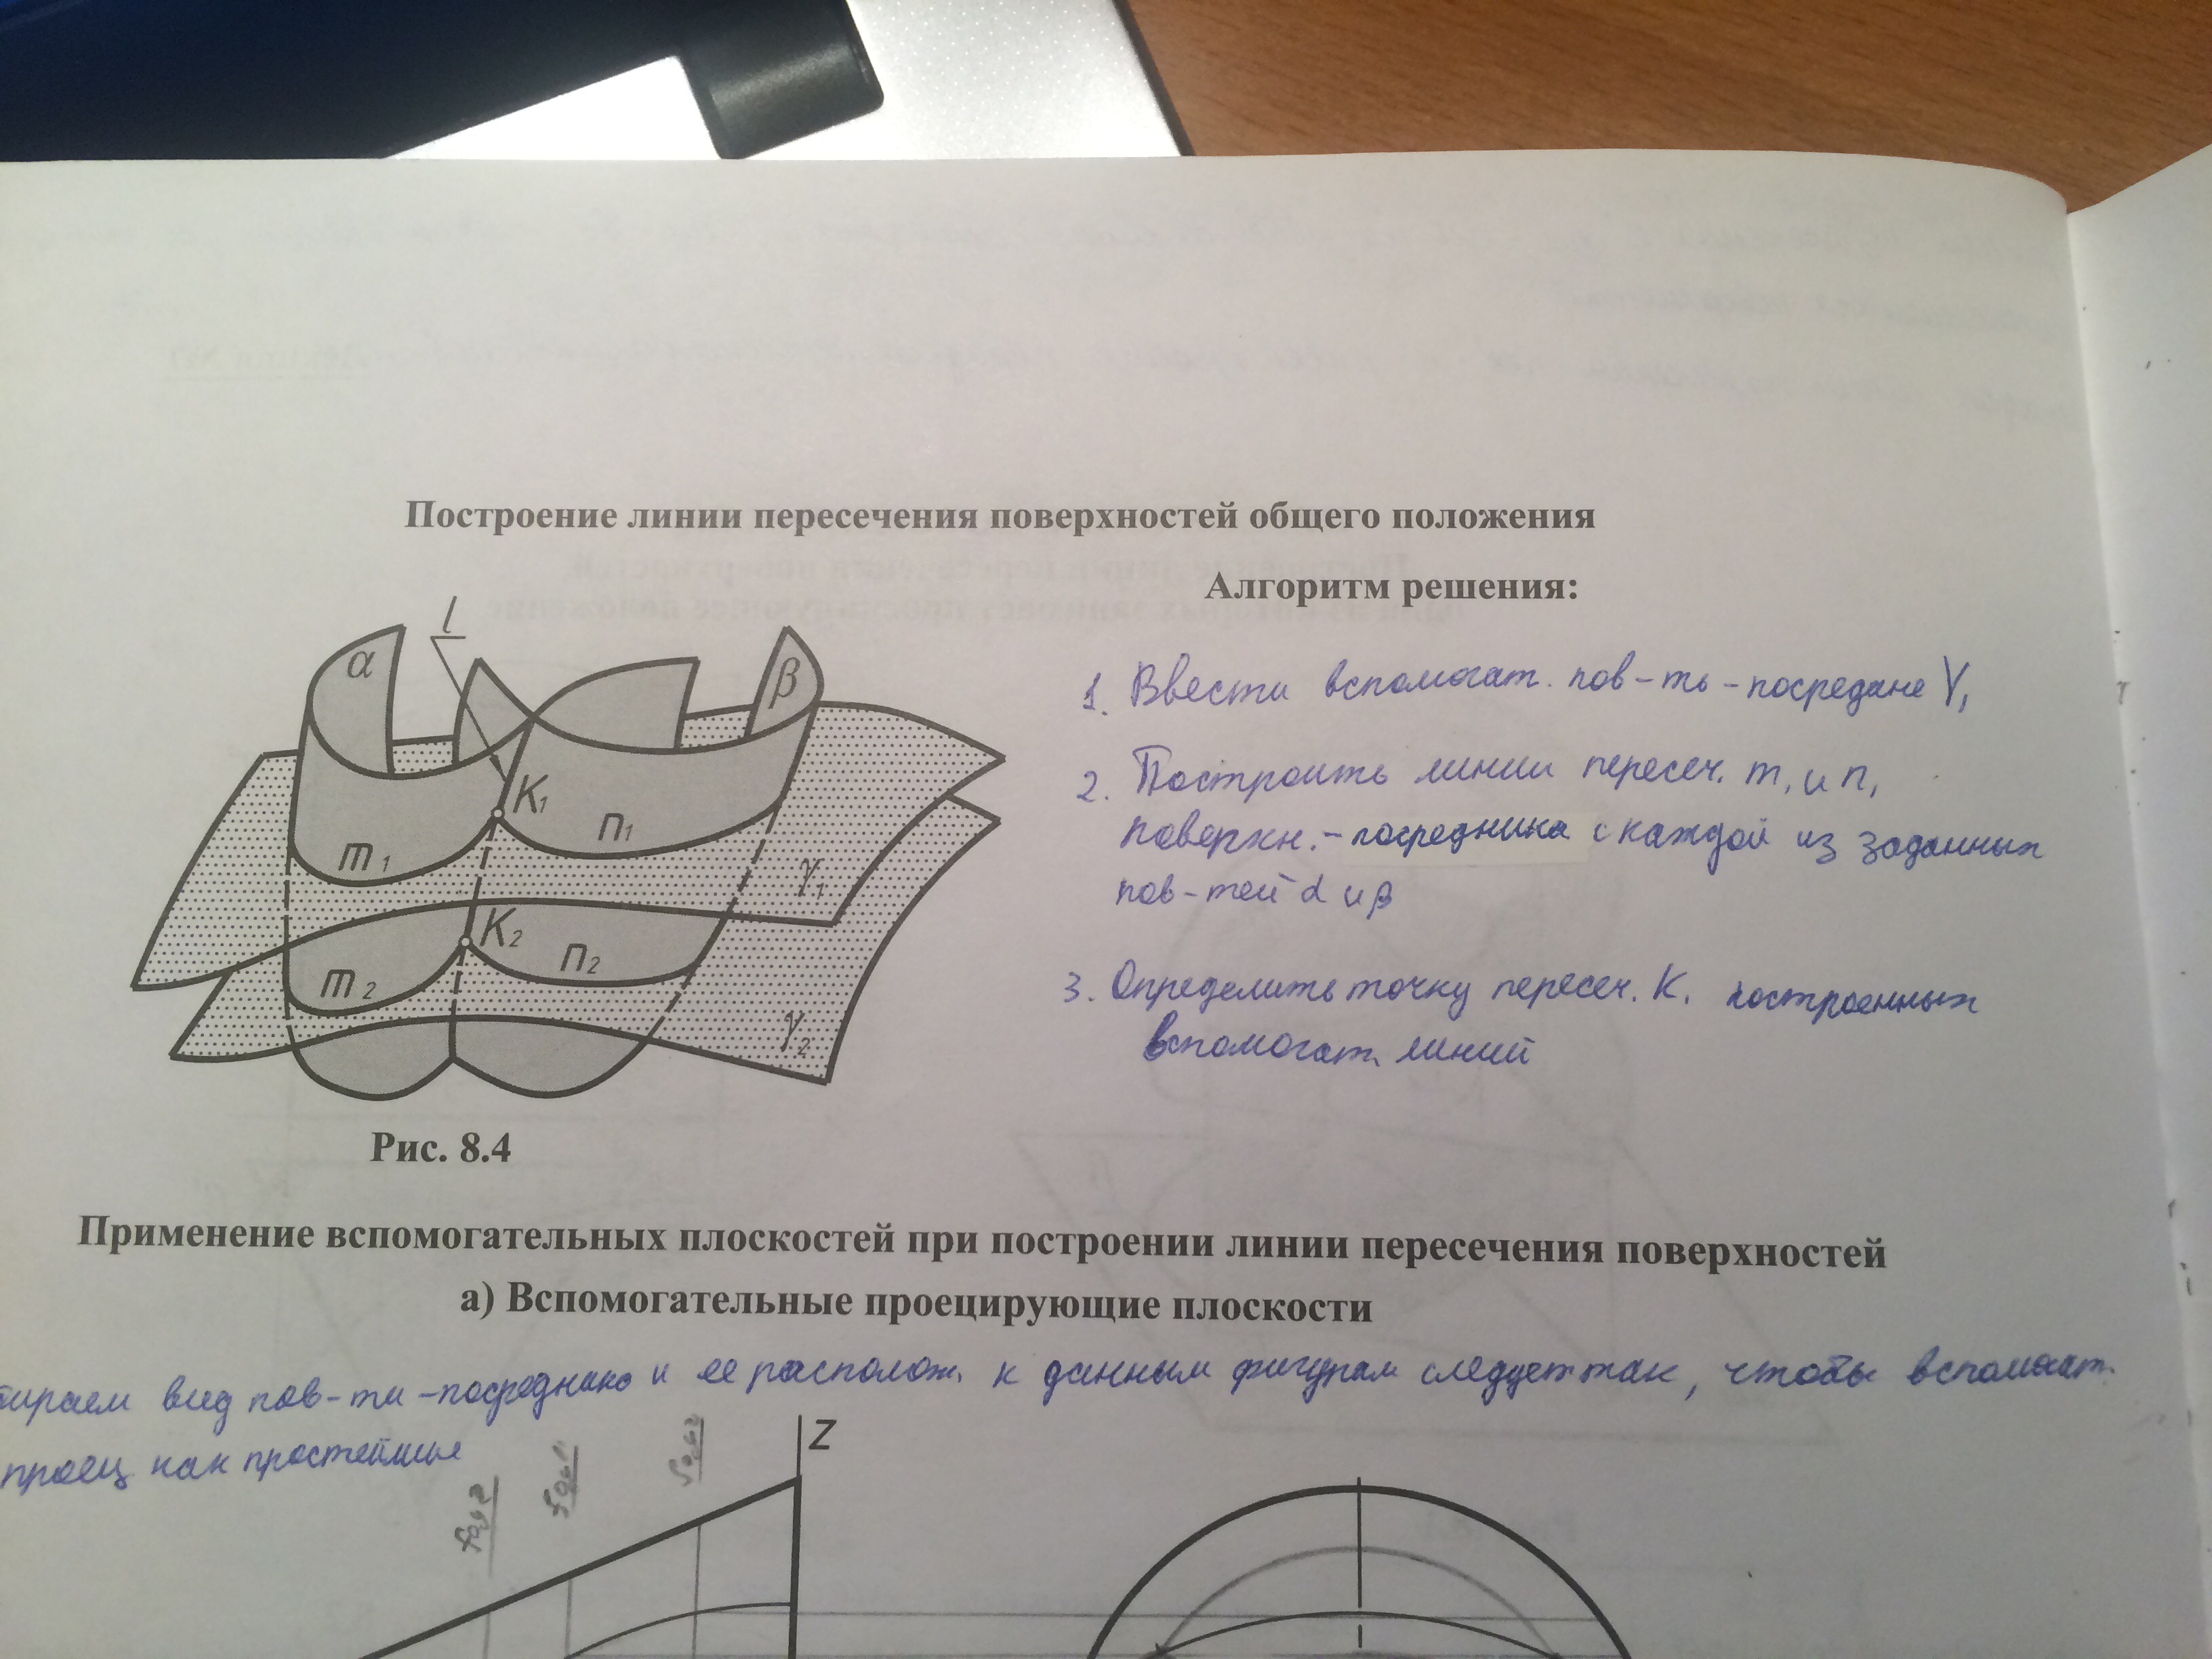 Построение линии пересечения поверхностей общего положения
Алгоритм решения:
α
l
β
m₁
K₁
n₁
γ₁
m₂
K₂
n₂
γ₂
Рис. 8.4
1. Ввести вспомогат. пов-ть-посредние γ₁
2. Построить линии пересеч. m₁ и n₁
поверхн.-посредника с каждой из заданных
пов-тей α и β
3. Определить точку пересеч. K₁ построенных
вспомогат. линий
Применение вспомогательных плоскостей при построении линии пересечения поверхностей
а) Вспомогательные проецирующие плоскости
вид пов-ти-посредника и ее располож. к данным фигурам следует так, чтобы вспомогат.
проец как простейшие
Z